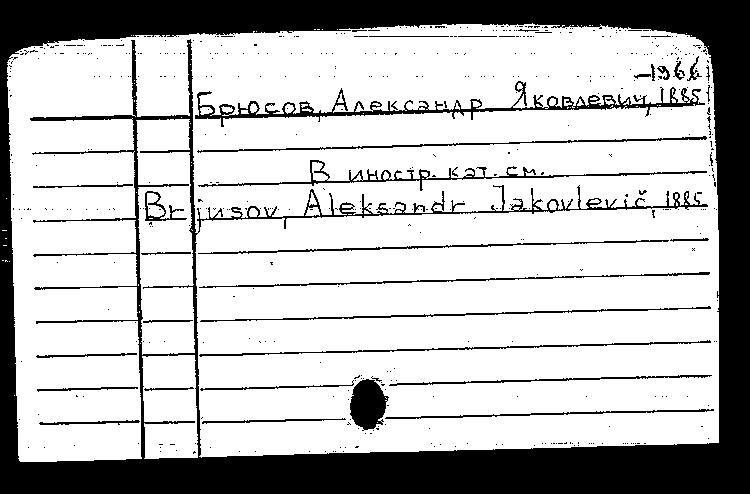 -1966
Брюсов, Александр Яковлевич, 1885
В иностр. кат. см.
Brjusov, Aleksandr Jakovlevič, 1885